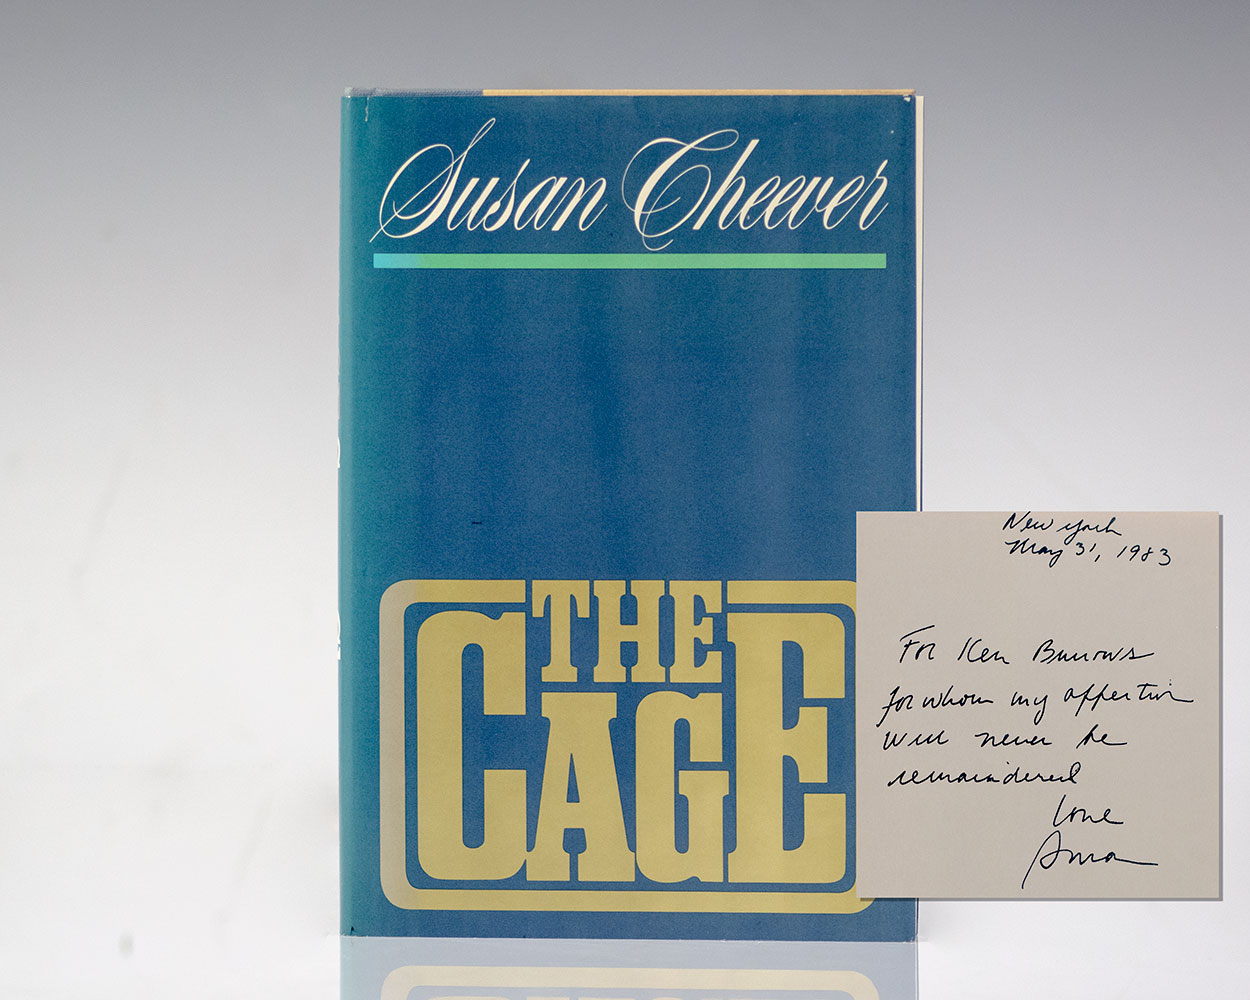 Susan Cheever
THE
CAGE
New York
May 31, 1983
For Ken Burrows
for whom my affection
will never be
remaindered
love
Susan